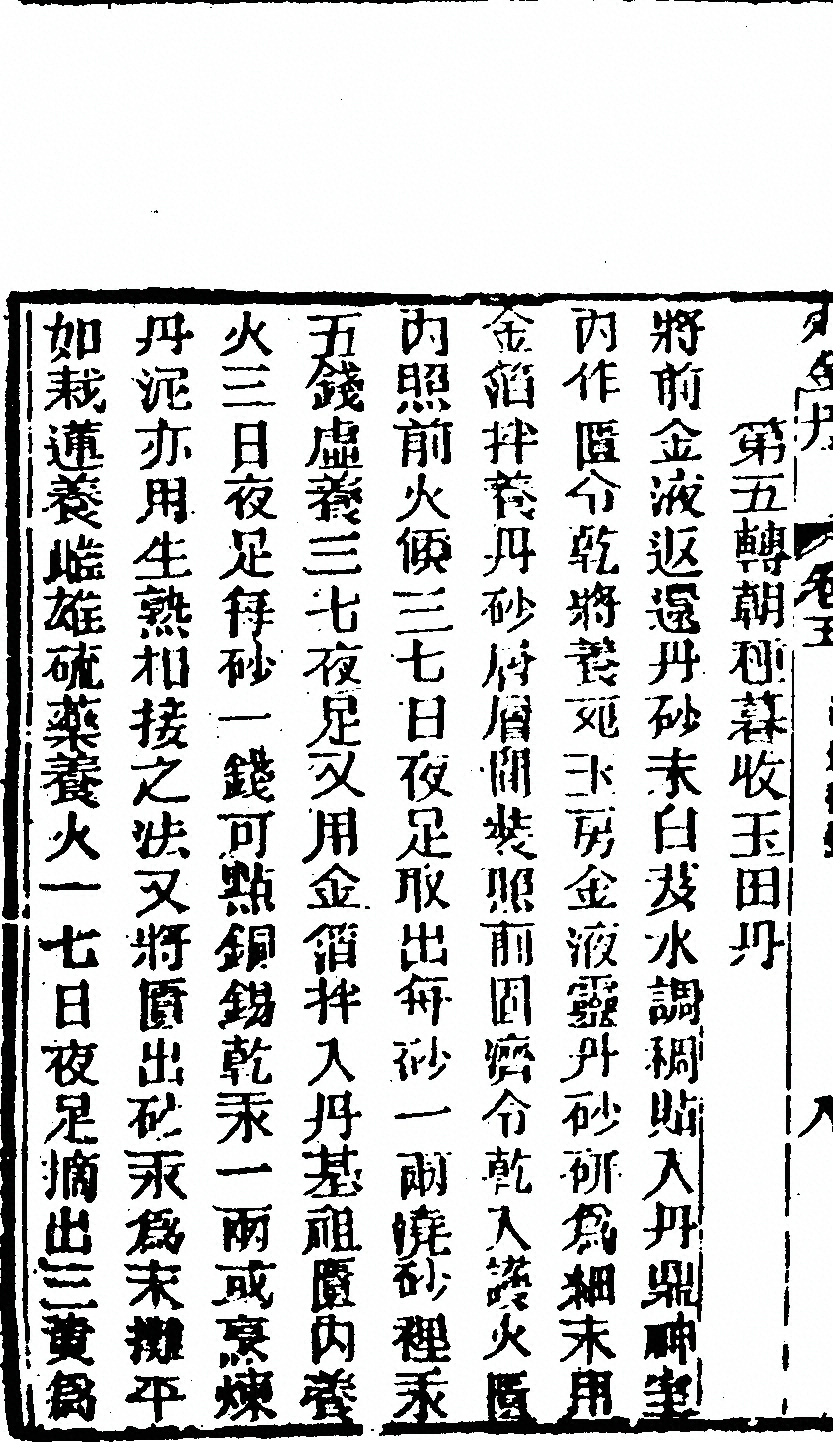 第五轉朝種暮收玉田丹
將前金液返還丹砂末白芨水調稠貼入丹鼎神室
內作匱令乾將養死玉房金液靈丹砂研為細末用
金箔拌養丹砂層層間裝照前固濟令乾入護火匱
內照前火候三七日夜足取出每砂一兩澆砂裡汞
五錢虛養三七夜足又用金箔拌入丹基祖匱內養
火三日夜足每砂一錢可點銅錫乾汞一兩或烹煉
丹泥亦用生熟相接之法又將匱出砂汞爲末攤平
如栽蓮養雌雄硫藥養火一七日夜足摘出三黃爲